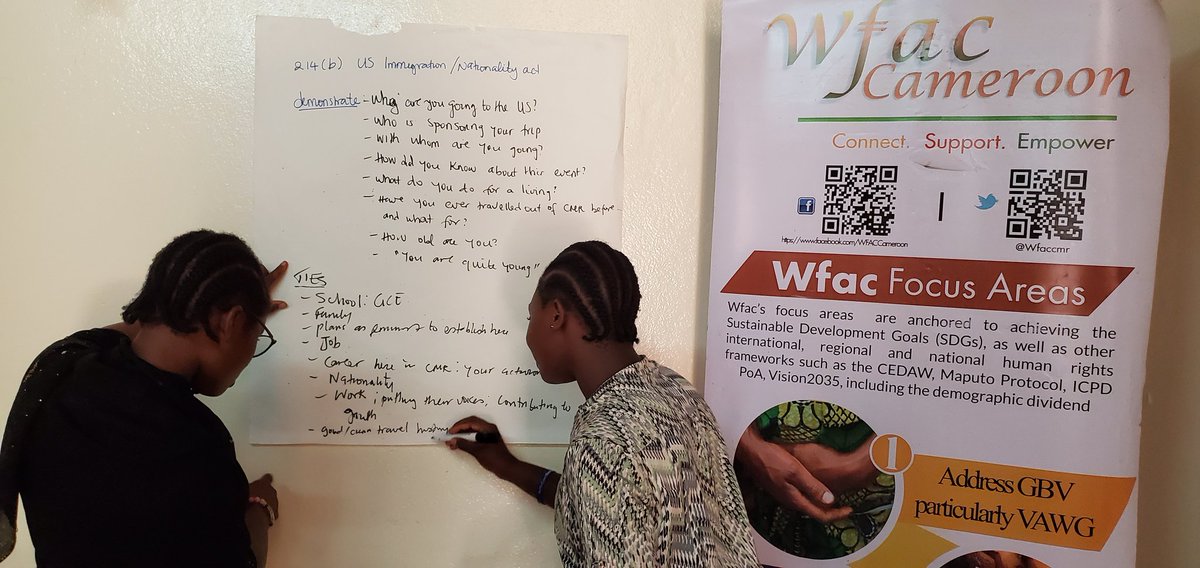 214(b) US Immigration/Nationality act
demonstrate - Why are you going to the US?
- Who is sponsoring your trip
- With whom are you going?
- How did you know about this event?
- What do you do for a living?
- Have you ever travelled out of CMR before
and what for?
- How old are you?
- "You are quite young"
TIES
- School: GCE
- Family
- plans as feminist to establish here
- Job
- Career here in CMR: your
- Nationality
- Work; putting their voices, contributing to
- good/clean travel history
Wfac
Cameroon
Connect. Support. Empower
https://www.facebook.com/WFACCameroon
@Wfaccmr
Wfac Focus Areas
Wfac's focus areas are anchored to achieving the
Sustainable Development Goals (SDGs), as well as other
international, regional and national human rights
frameworks such as the CEDAW, Maputo Protocol, ICPD
PoA, Vision2035, including the demographic dividend
1
Address GBV
particularly VAWG